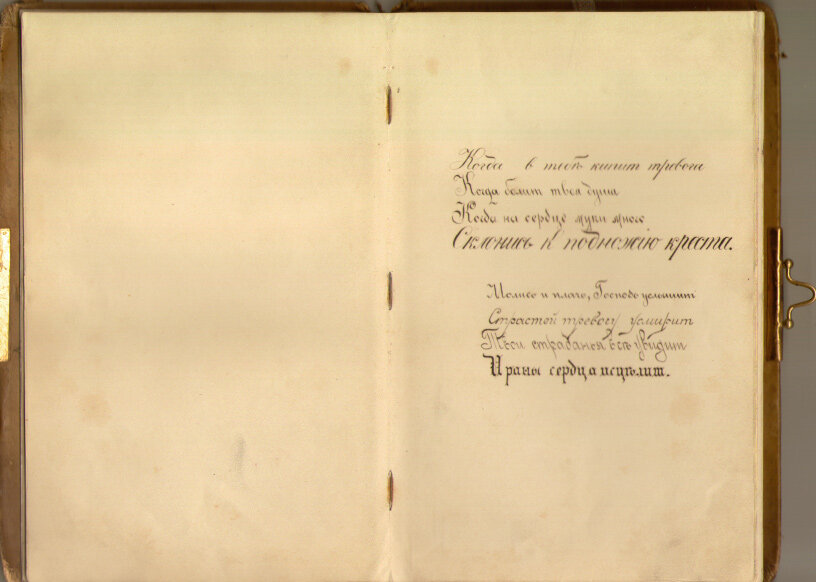 Когда в тебѣ кипит тревога
Когда болит твоя душа
Когда на сердце муки много
Склонись к подножію креста.
Молись и плачь, Господь услышит
Страстей тревогу усмирит
Твои страданья всѣ увидит
И раны сердца исцѣлит.